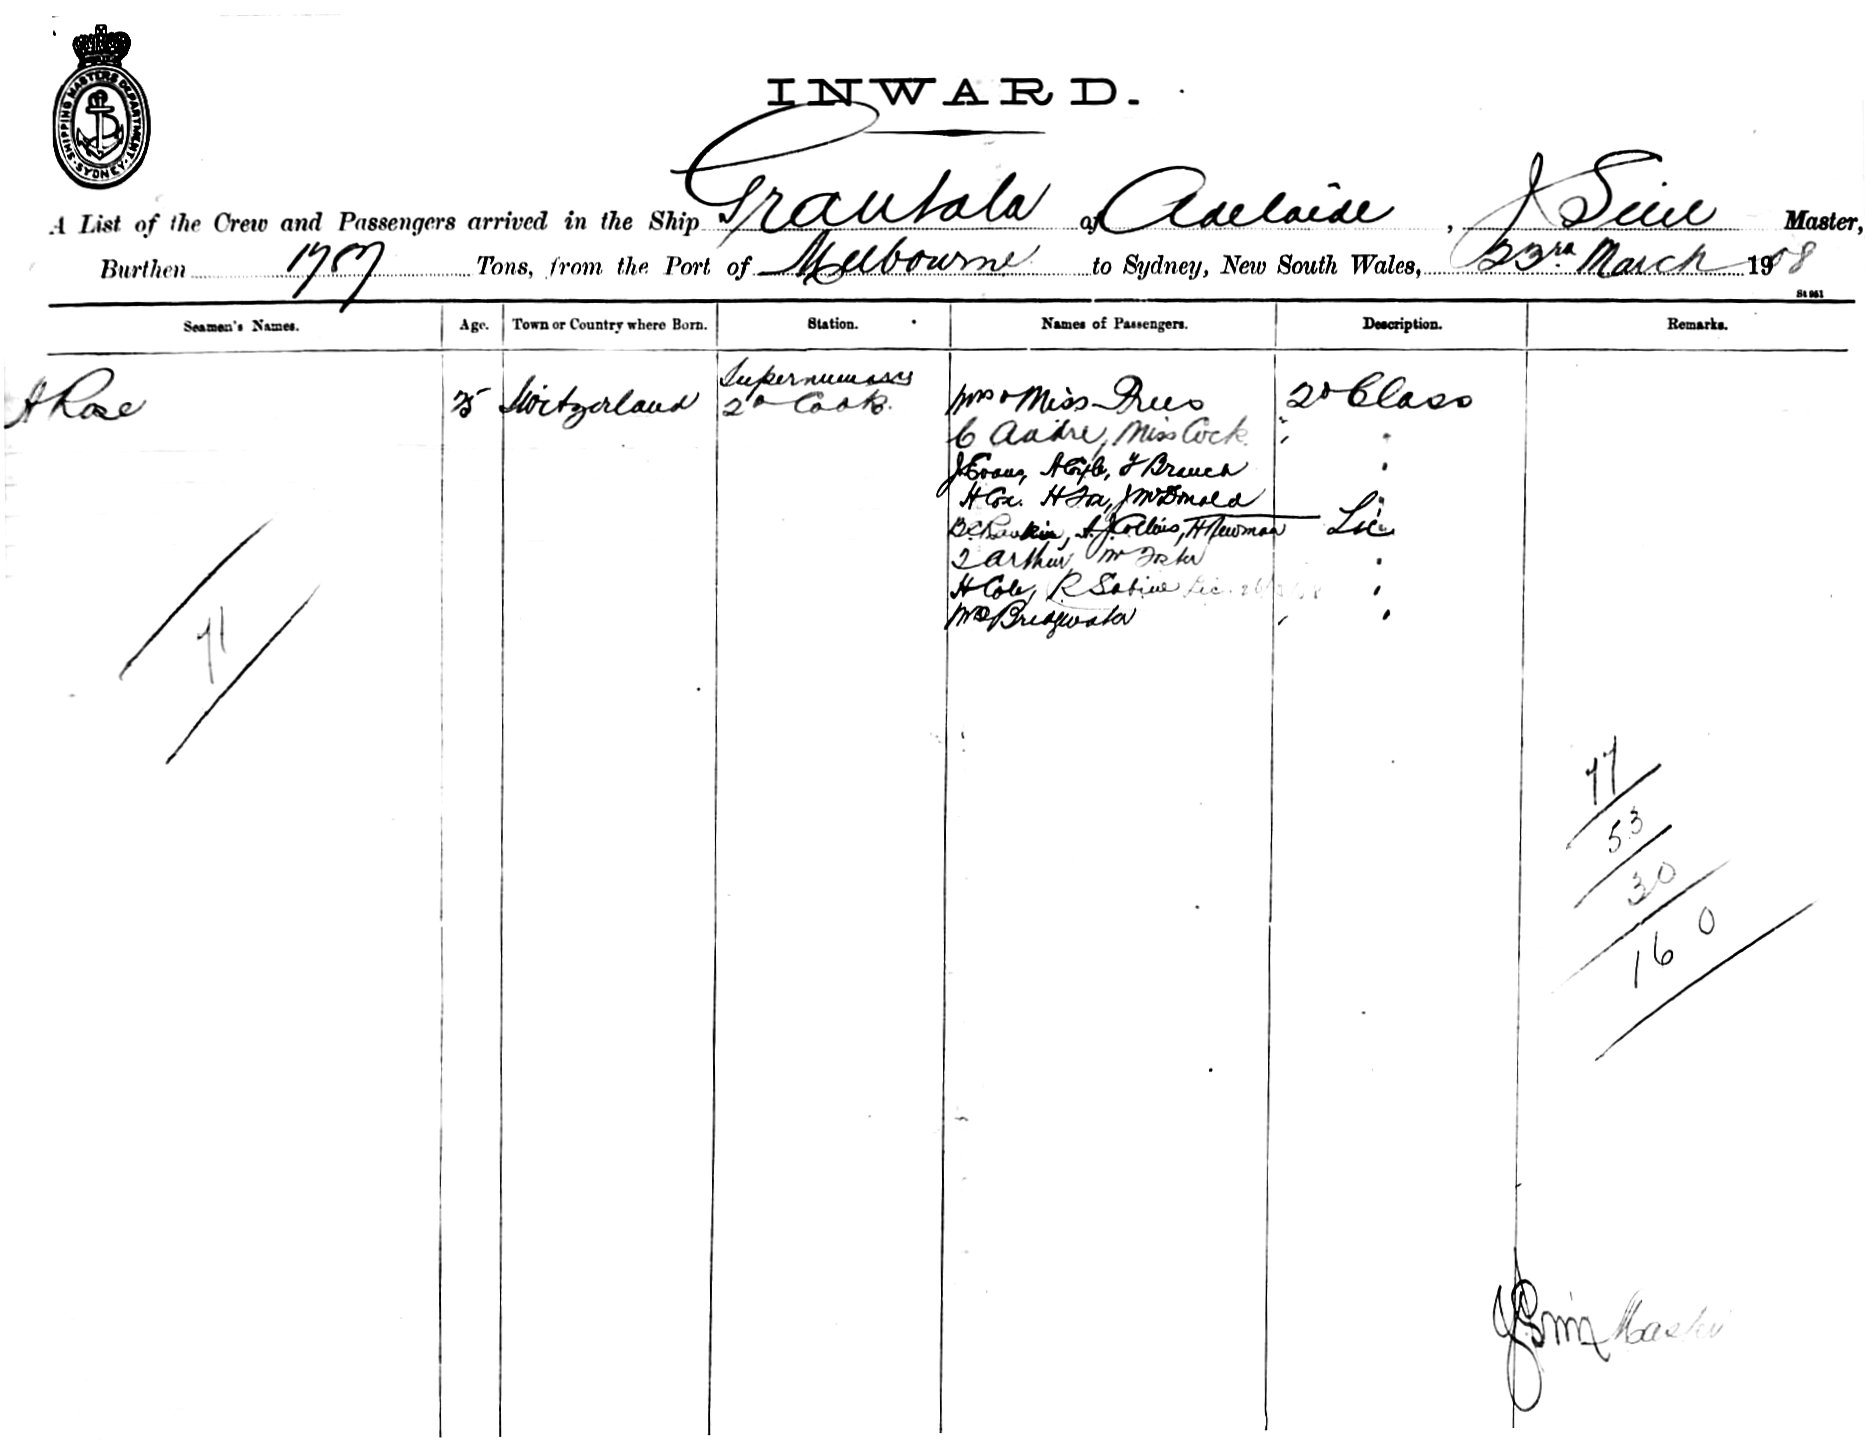 SHIPPING MASTERS DEPARTMENT · SYDNEY
INWARD.
A List of the Crew and Passengers arrived in the Ship Grantala of Adelaide, J Sim Master,
Burthen 1787 Tons, from the Port of Melbourne to Sydney, New South Wales, 23rd March 1908
St 961
Seamen's Names. Age. Town or Country where Born. Station. Names of Passengers. Description. Remarks.
Supernumary
A Rose 25 Switzerland 2d Cook. Mrs & Miss 2d Class
C Andre, Miss Cock " "
J Evans, F Branch "
H Cox. H Fox, J McDonald "
Rankin, A. J. Collins, H Newman
Arthur "
H Cole, R Sabine "
Bridgwater " "
71
77
53
30
160
J Sim Master